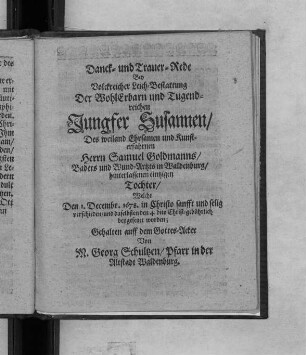 Danck- und Trauer-Rede
Bey
Volckreicher Leich-Bestattung
Der WohlErbarn und Tugend-
reichen
Jungfer Susannen/
Des weiland Ehrsamen und Kunst-
erfahrnen
Herrn Samuel Goldmanns/
Baders und Wund-Artzts in Waldenburg/
hinterlassenen eintzigen
Tochter/
Welche
Den 1. Decembr. 1678. in Christo sanfft und selig
verschieden und daselbsten den 4. die Christ-gebührlich
beygesetzt worden;
Gehalten auff dem Gottes-Acker
Von
M. Georg Schultzen/ Pfarr in der
Altstadt Waldenburg.